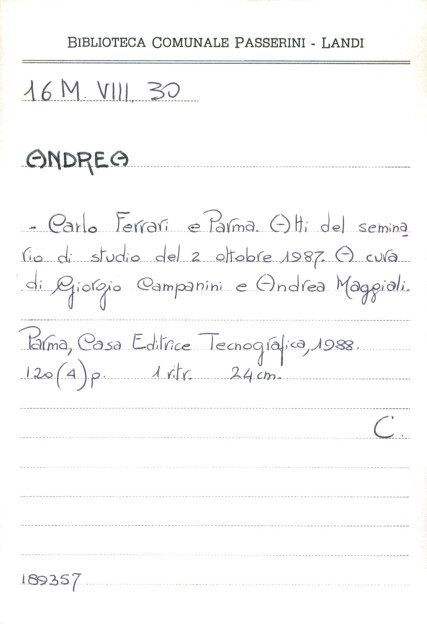 BIBLIOTECA COMUNALE PASSERINI - LANDI
16 M. VIII. 30
ANDREA
- Carlo Ferrari e Parma. Atti del semina
rio di studio del 2 ottobre 1987. A cura
di Giorgio Campanini e Andrea Maggiali.
Parma, Casa Editrice Tecnografica, 1988.
120 (4) p. 1 ritr. 24 cm.
C.
189357